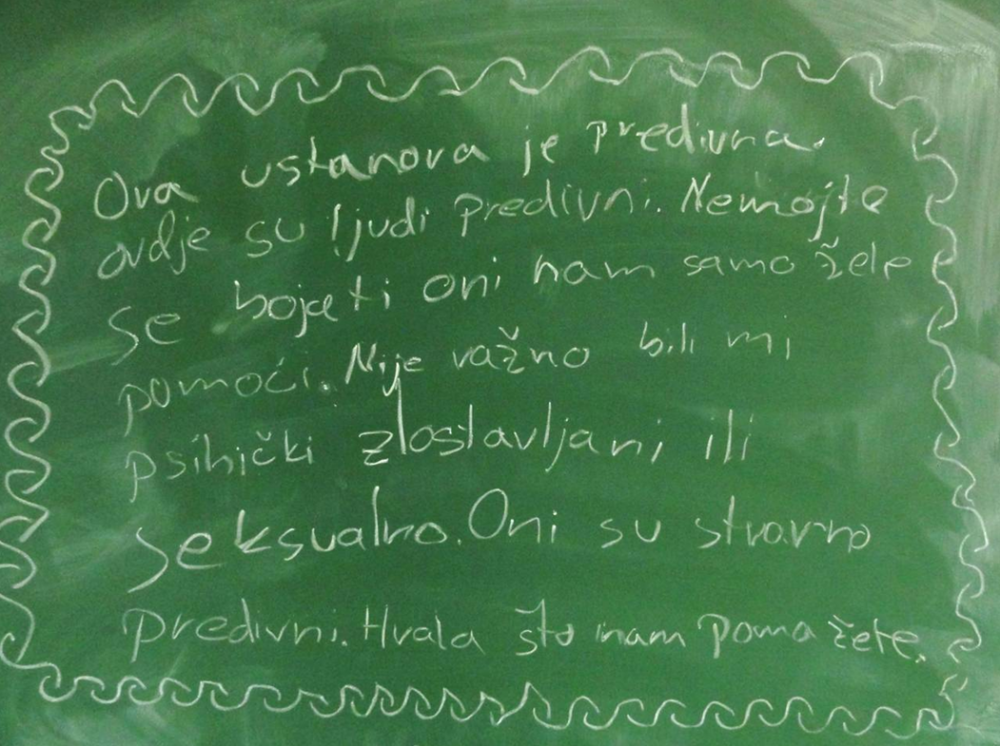 Ova ustanova je predivna.
ovdje su ljudi predivni. Nemojte
se bojati oni nam samo žele
pomoći. Nije važno bili mi
psihički zlostavljani ili
seksualno. Oni su stvarno
predivni. Hvala što nam pomažete.